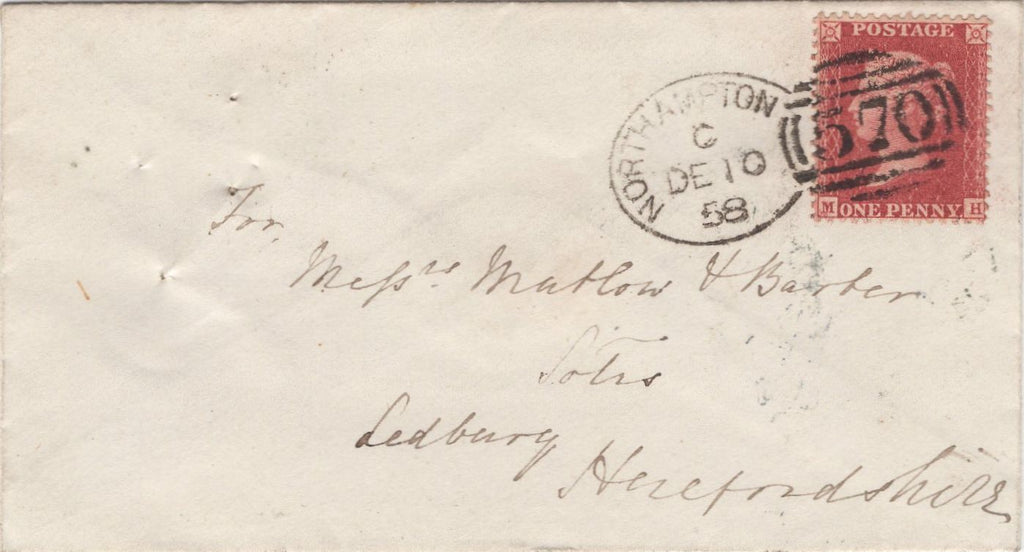 POSTAGE
570
M ONE PENNY H
NORTHAMPTON
C
DE 10
58
For,
Messrs Mutlow & Barber
Solrs
Ledbury
Herefordshire